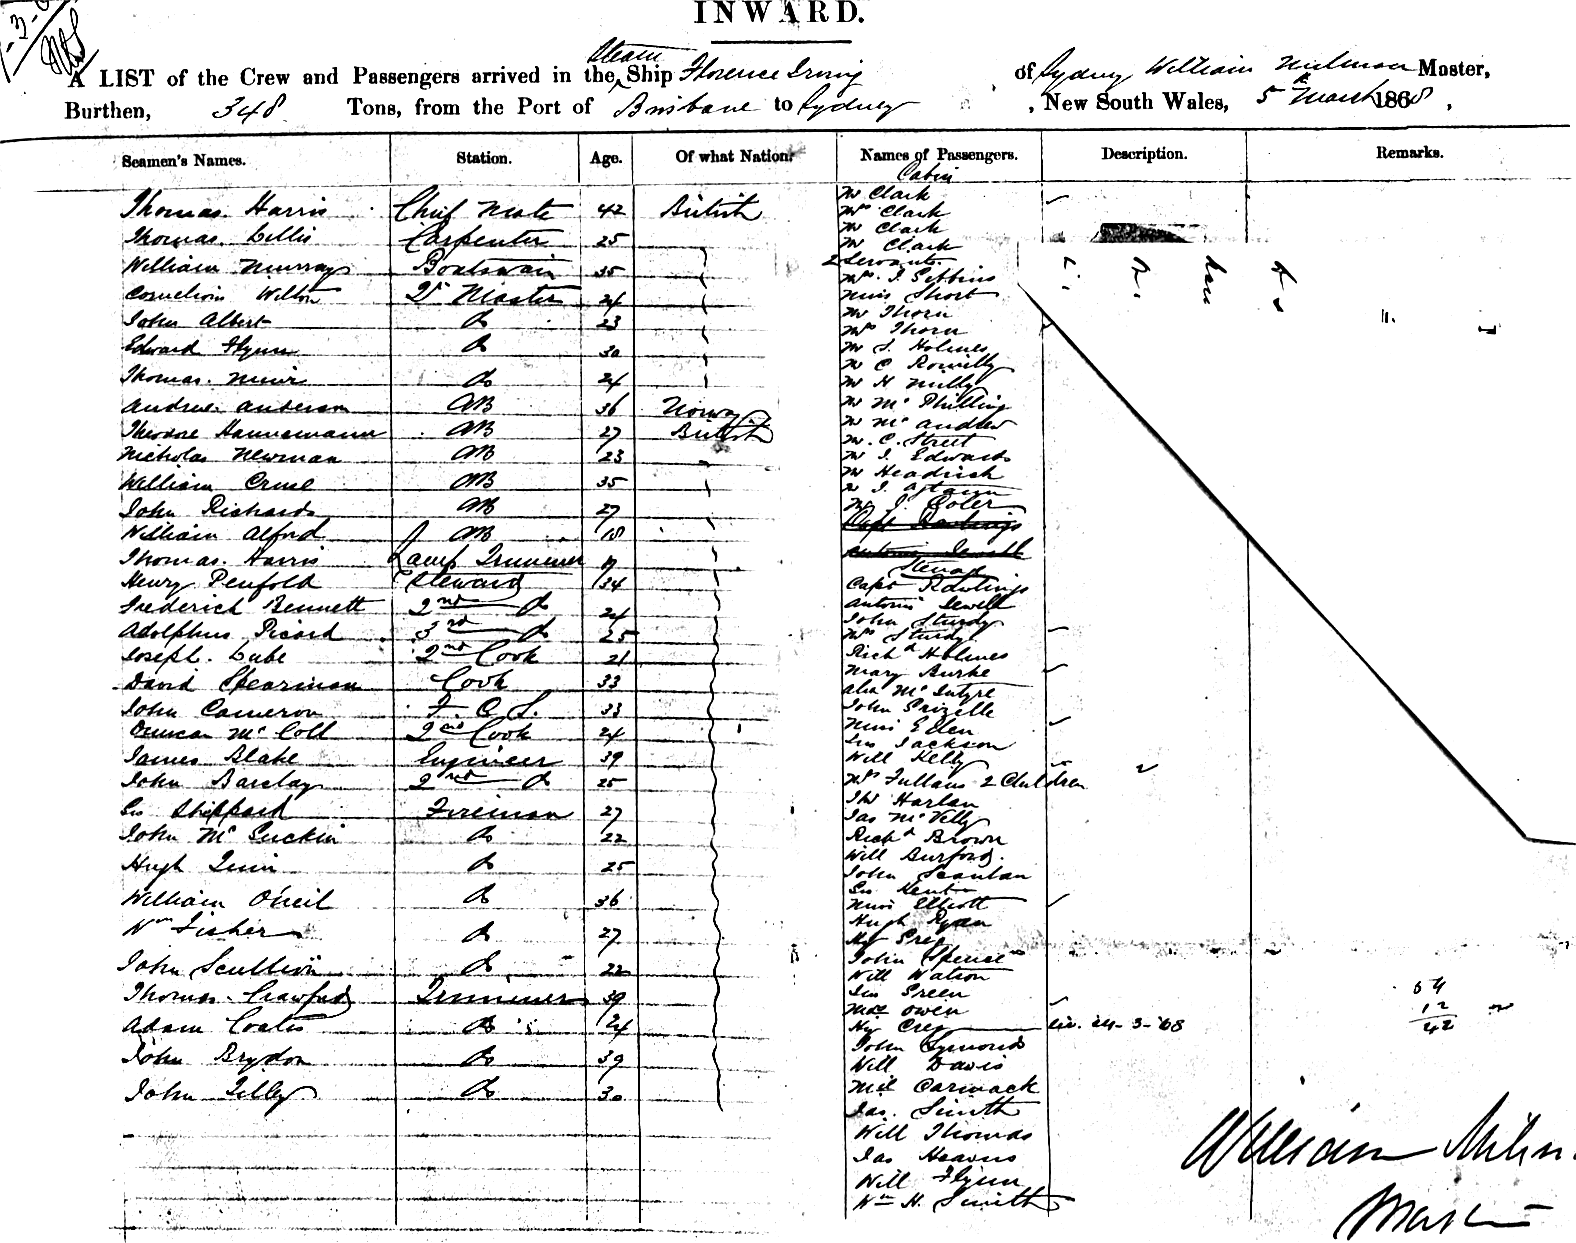 INWARD.
A LIST of the Crew and Passengers arrived in the Steam Ship Florence Irving of Sydney William Milman Master,
Burthen, 348 Tons, from the Port of Brisbane to Sydney, New South Wales, 5 March 1868,
Seamen's Names. Station. Age. Of what Nation. Names of Passengers. Description. Remarks.
Cabin
Thomas Harris Chief Mate 42 British
Thomas Lillis Carpenter 25
William Murray Boatswain 35
Cornelius Wilton 2d Master 24
John Albert Do 23
Edward Flynn Do 30
Thomas Muir Do 24
Andrew Anderson AB 36 Norway
Theodore Hannemann AB 27 British
Nicholas Newman AB 23
William Cruse AB 35
John Richards AB 27
William Alford AB 18
Thomas Harris Lamp Trimmer
Henry Penfold Steward 34
Frederick Bennett 2nd Do 24
Adolphus Picard 3rd Do 25
Joseph Lube 2nd Cook 21
David Spearman Cook 33
John Cameron F. C. S. 33
Duncan McColl 2nd Cook 24
James Blake Engineer 39
John Barclay 2nd Do 25
Geo Sheppard Fireman 27
John McGuckin Do 22
Hugh Quin Do 25
William O'neil Do 36
Wm Fisher Do 27
John Scullion Do 22
Thomas Crawford Trimmer 39
Adam Coates Do 24
John Brydon Do 39
John Tilley Do 30
Mr Clark
Mrs Clark
Mr Clark
Mr Clark
2 Servants
Mrs J. Gibbins
Miss Short
Mr Thorn
Mrs Thorn
Mr S. Holmes
Mr C Romilly
Mr H Milly
Mr McPhilling
Mr McAndrew
Mr C. Street
Mr J. Edwards
Mr Headrick
Mr J. Coler
Capt Rawlings
Antonio Sewell
Steerage
Capt Rawlings
Antonio Sewell
John Sturdy
Mrs Sturdy
Richd Holmes
Mary Burke
Alex McIntyre
John Grizelle
Miss Eden
Geo Jackson
Will Kelly
Mrs Fullans 2 Children
Thos Harlan
Jas McVelly
Richd Brown
Will Burford
John Scanlan
Geo Kenton
Miss Elliott
Hugh Ryan
Hy Greg
John Spence
Will Watson
Jas Green
Mde Owen
Hy Creg 24-3-68
John Symonds
Will Davis
Mil Carmack
Jas. Smith
Will Thomas
Jas Heavens
Will Flynn
Wm H. Smith
54
12
42
William Milm
Master